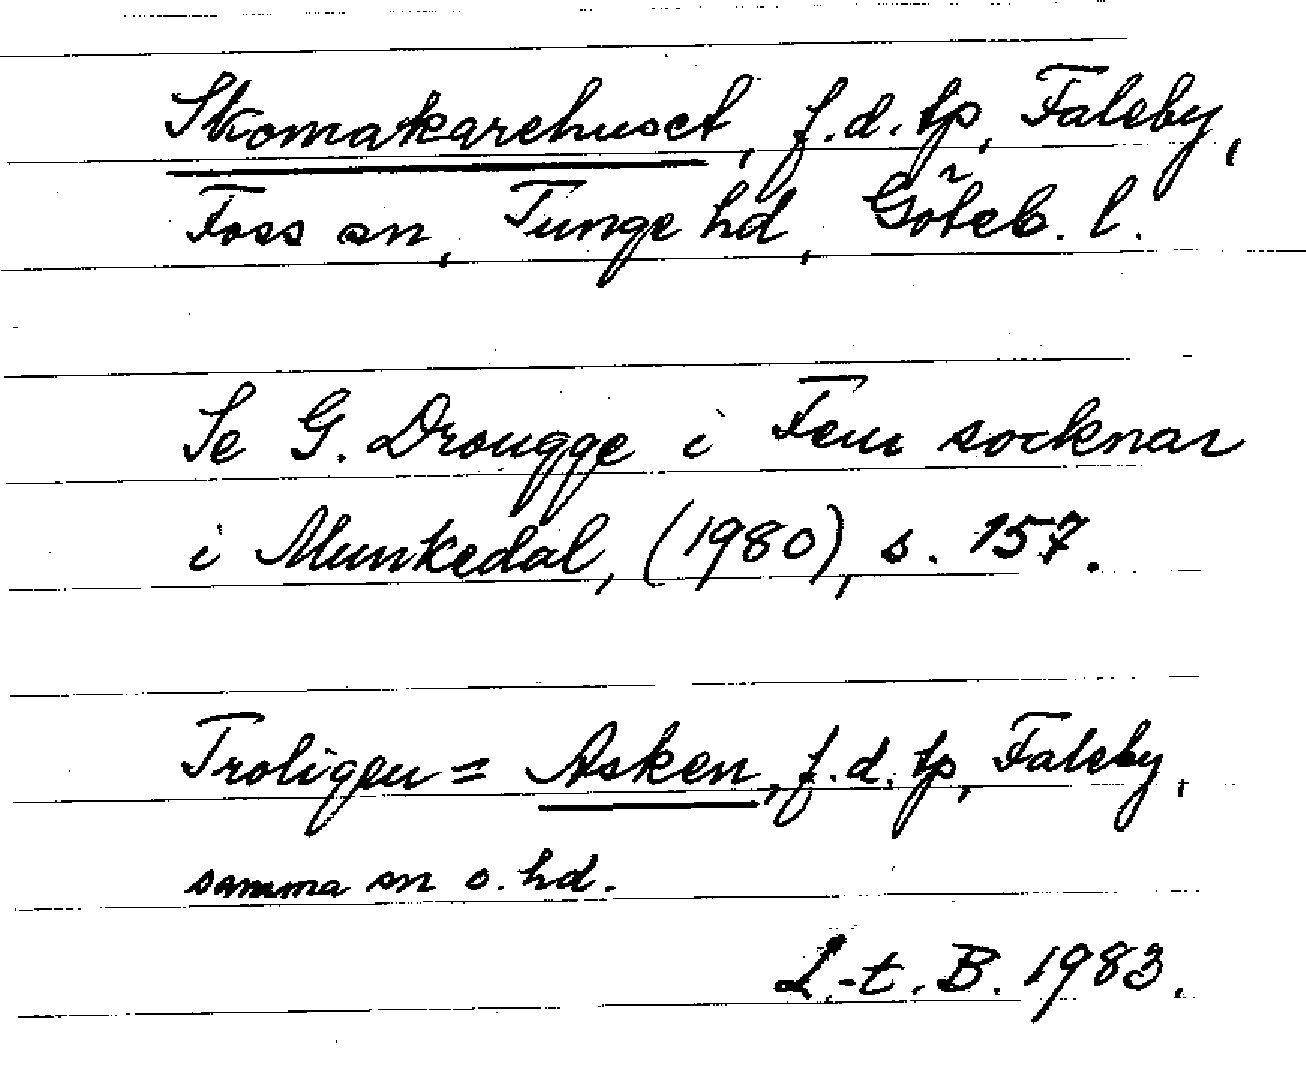 Skomakarehuset, f.d. tp, Faleby,
Foss sn, Tunge hd, Göteb. l.
Se G. Drougge i Fem socknar
i Munkedal, (1980), s. 157.
Troligen = Asken, f.d. tp, Faleby,
samma sn o. hd.
L.-t. B. 1983.